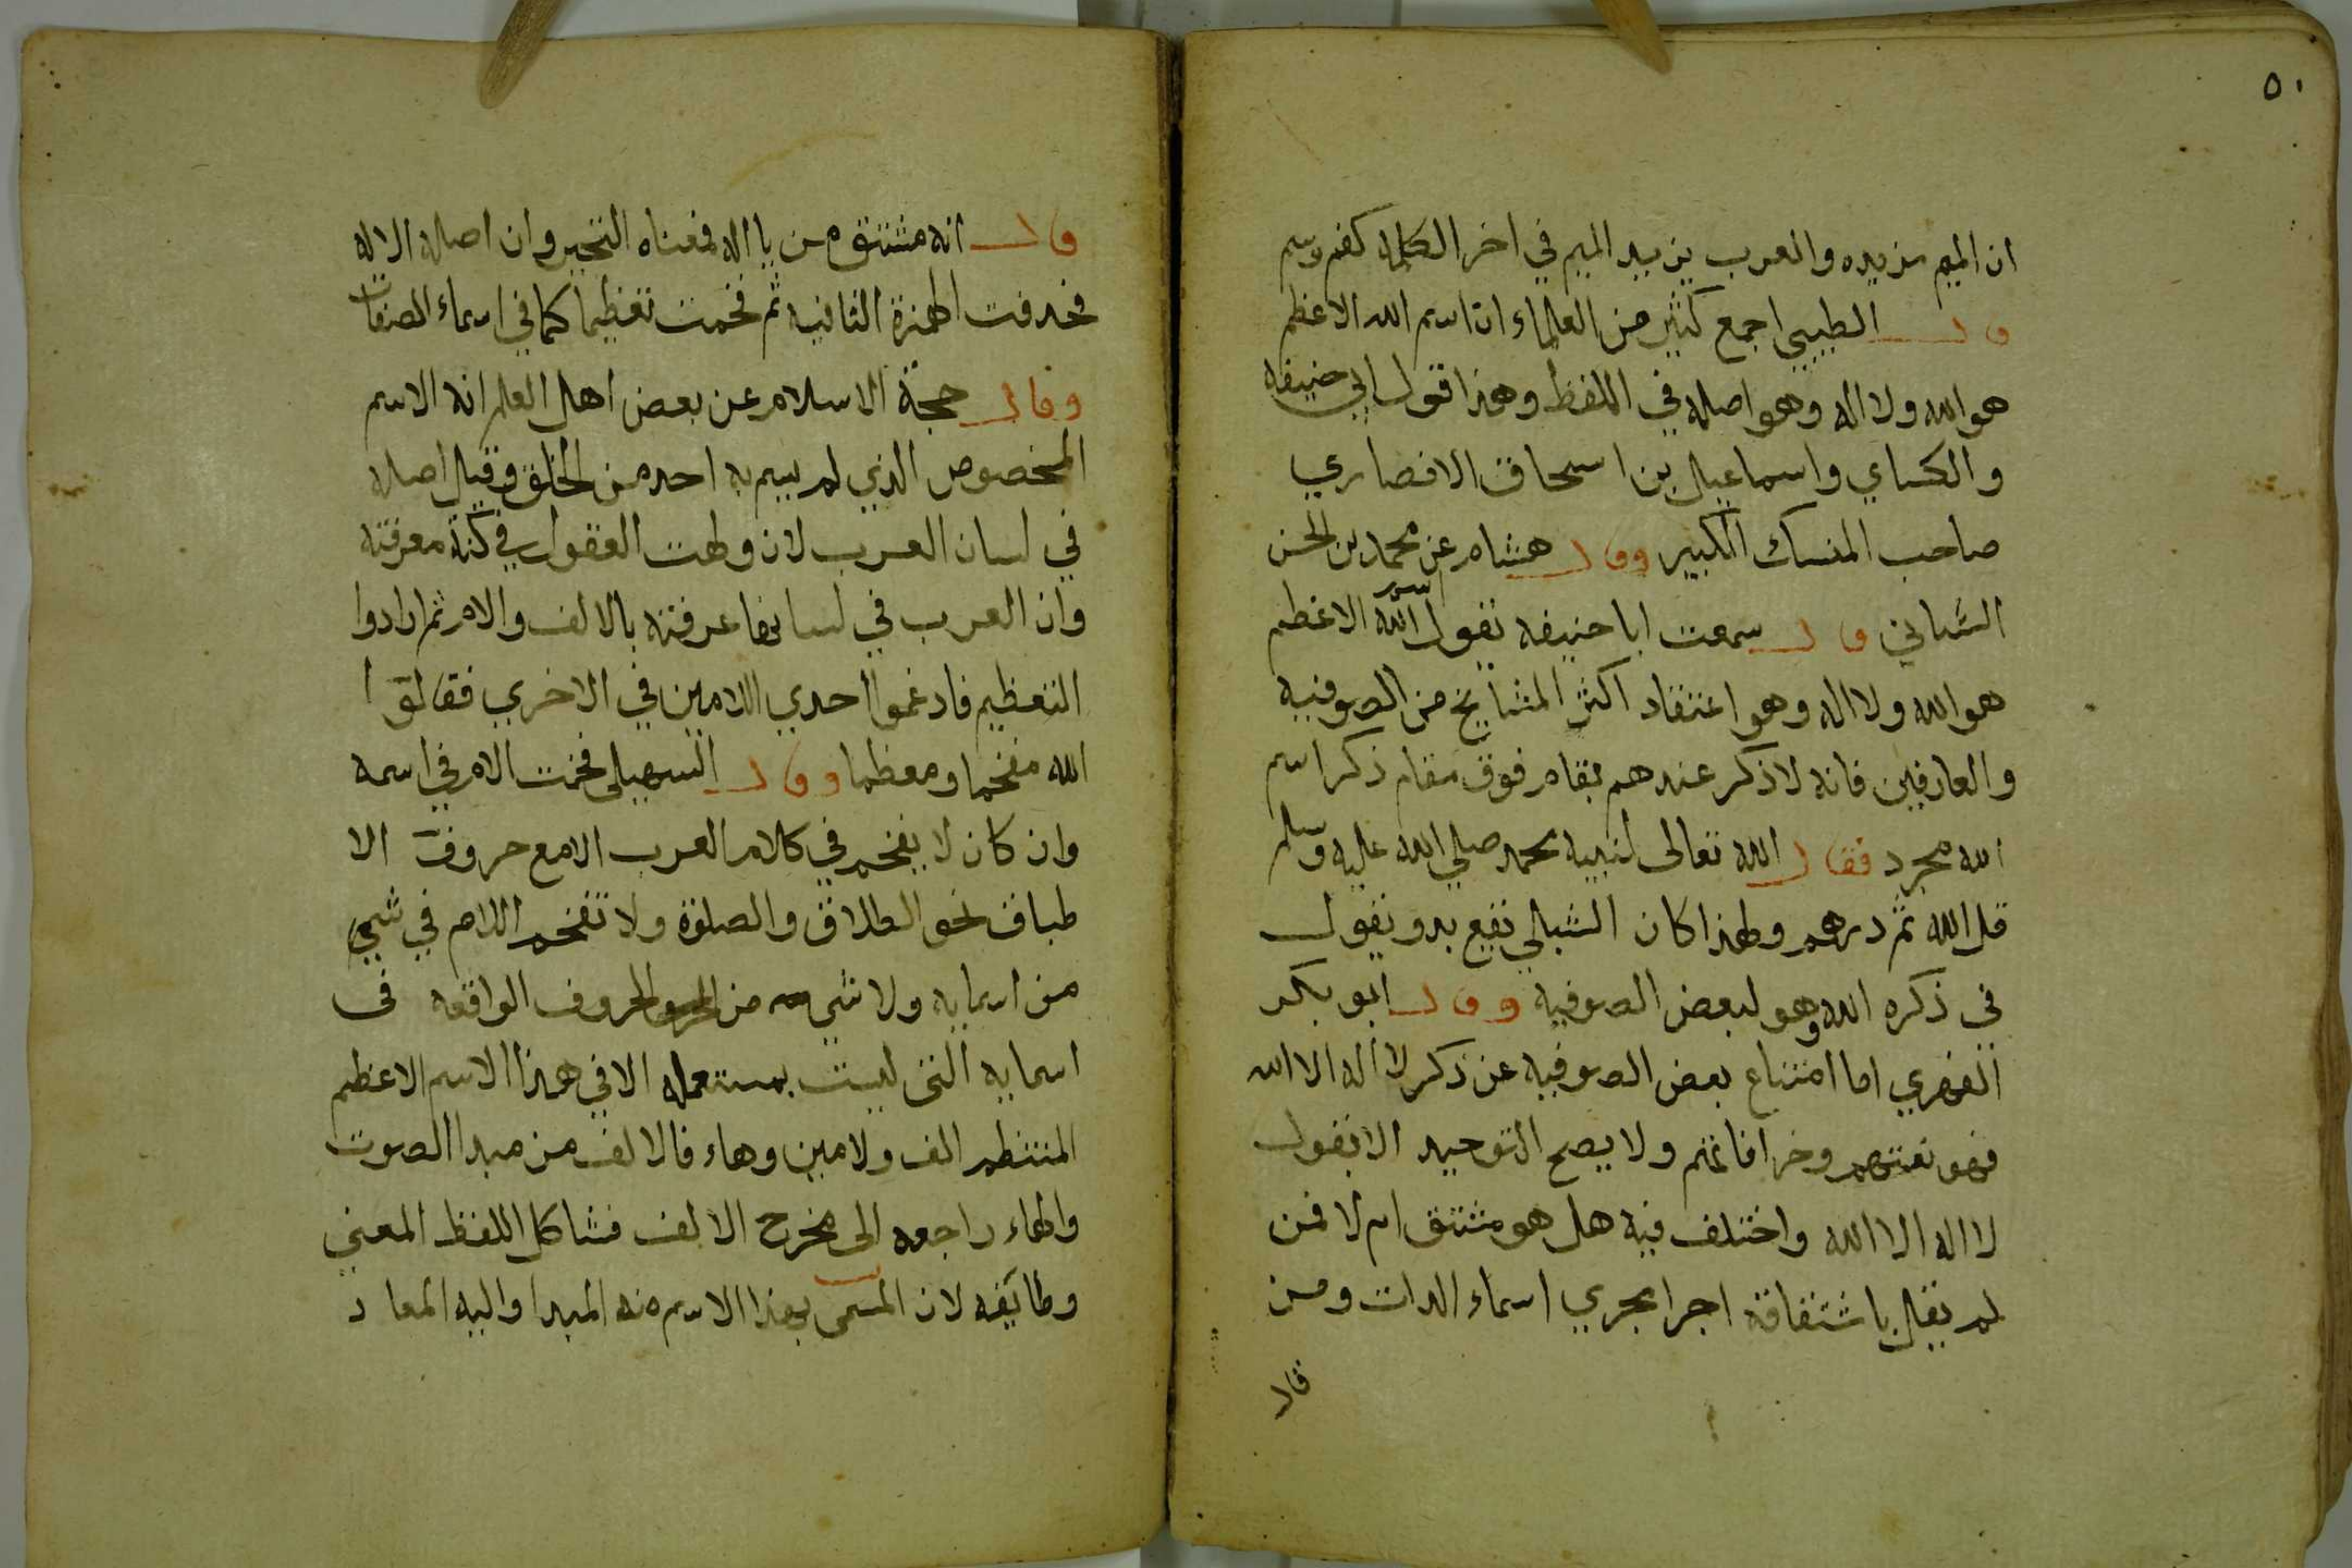 ٥٠
ان الميم مزيده والعرب يزيد الميم في اخر الكلمه كفم وسم
وقال الطيبي اجمع كثير من العلماء ان اسم الله الاعظم
هو الله ولا اله وهو اصله في اللفظ وهذا قول ابي حنيفه
والكساي واسماعيل بن اسحاق الانصاري
صاحب المنسك الكبير وقال هشام عن محمد بن الحسن
الشباني قال سمعت ابا حنيفه يقول اسم الله الاعظم
هو الله ولا اله وهو اعتقاد اكثر المشايخ من الصوفيه
والعارفين فانه لا ذكر عندهم بمقام فوق مقام ذكر اسم
الله مجرد فقال الله تعالى لنبيه محمد صلي الله عليه وسلم
قل الله ثم درهم ولهذا كان الشبلي يقع يدو يقول
في ذكره الله وهو لبعض الصوفيه وقال ابو بكر
الفهري اما امتناع بعض الصوفيه عن ذكر لا اله الا الله
فهو ولا يصح التوحيد الا بقول
لا اله الا الله واختلف فيه هل هو مشتق ام لا فمن
لم يقل باشتقاقه اجرا مجري اسماء الدات ومن
قال
قال انه مشتق من يا اله فمعناه التحير وان اصله الاله
فحدفت الهمزة الثانيه ثم فخمت تعظيما كما في اسماء الصفات
وقال حجة الاسلام عن بعض اهل العلم انه الاسم
المخصوص الذي لم يسم به احد من الخلق وقيل اصله
في لسان العرب لان ولهت العقول في كنه معرفته
وان العرب في لسانها عرفته بالالف والام ثم ارادوا
التعظيم فادغموا احدي اللامين في الاخري فقالوا
الله مفخما ومعظما وقال السهيلي فخمت الام في اسمه
وان كان لا يفخم في كلام العرب الا مع حروف الا
طباق نحو الطلاق والصلوة ولا تفخم اللام في شي
من اسمايه ولا شي من الحروف الواقعه في
اسمايه التي ليست بمستعمله الا في هذا الاسم الاعظم
المنتظم الف ولامين وهاء فالالف من مبدا الصوت
والهاء راجعه الى مخرج الالف فشاكل اللفظ المعني
وطابقه لان المسمى بهذا الاسم منه المبدا واليه المعاد